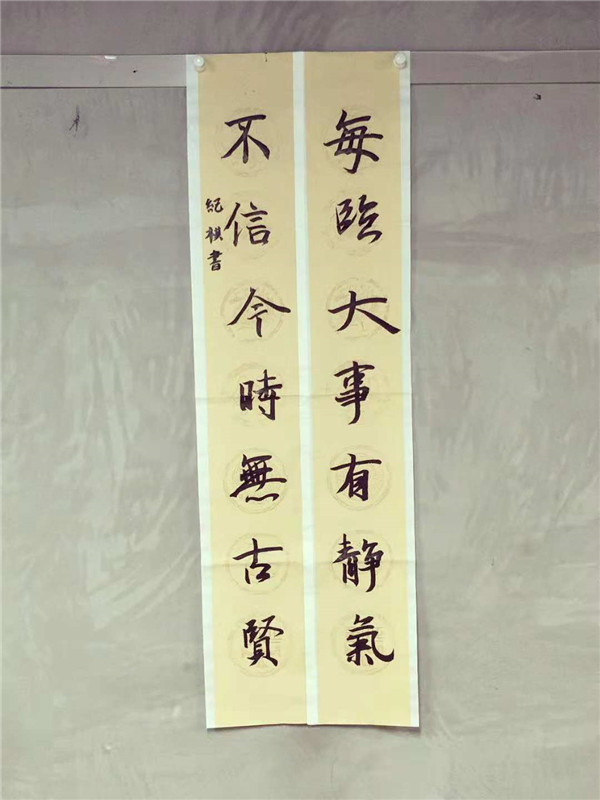 每臨大事有靜氣
不信今時無古賢
紀祺書